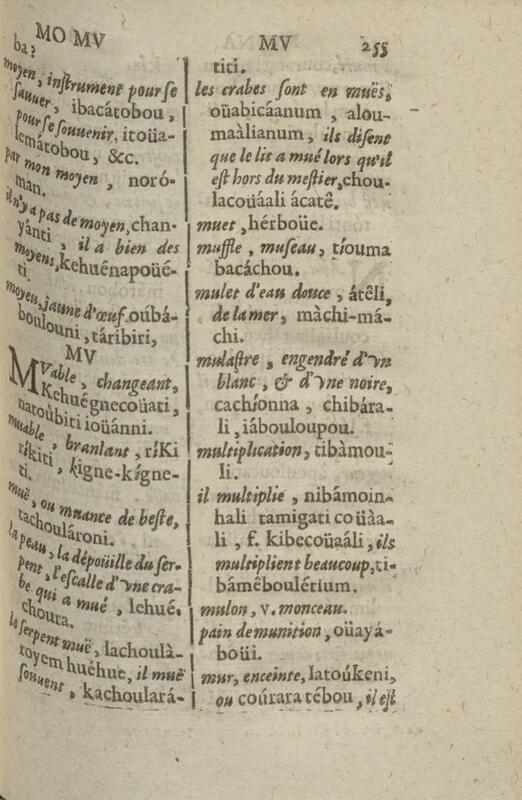 MO MV
ba?
moyen, inſtrument pour ſe
ſauuer, ibacátobou,
pour ſe ſouuenir, itoüa-
lemátobou, &c.
par mon moyen, noró-
man.
il n'y a pas de moyen, chan-
yànti, il a bien des
moyens, kehuénapoüé-
ti.
moyeu, jaune d'œuf oúbá-
boulouni, táribiri,
MV
MVable, changeant,
Kehuégnecoüati,
natoubiti ioüánni.
muable, branlant, ríKi
ríkiti, kigne-kígne-
ti.
muë, ou muance de beſte,
tachoulároni.
la peau, la dépoüille du ſer-
pent, l'eſcalle d'vne cra-
be qui a mué, lehué.
choura.
le ſerpent muë, lachoulà-
royem huéhue, il muë
ſouuent, kachoulará-
MV 255
titi.
les crabes ſont en muës,
oüabicáanum, alou-
maàlianum, ils diſent
que le lit a mué lors qu'il
eſt hors du meſtier, chou-
lacoüáali ácatê.
muet, hérboüe.
muffle, muſeau, tíouma
bacáchou.
mulet d'eau douce, átêli,
de la mer, màchi-má-
chi.
mulaſtre, engendré d'vn
blanc, & d'vne noire,
cachíonna, chibára-
li, iábouloupou.
multiplication, tibàmou-
li.
il multiplie, nibámoin-
hali tamigati coüàa-
li, f. kibecoüaáli, ils
multiplient beaucoup, ti-
bámêboulétium.
mulon, v. monceau.
pain de munition, oüayá-
boüi.
mur, enceinte, latoúkeni,
ou coúrara tébou, il eſt